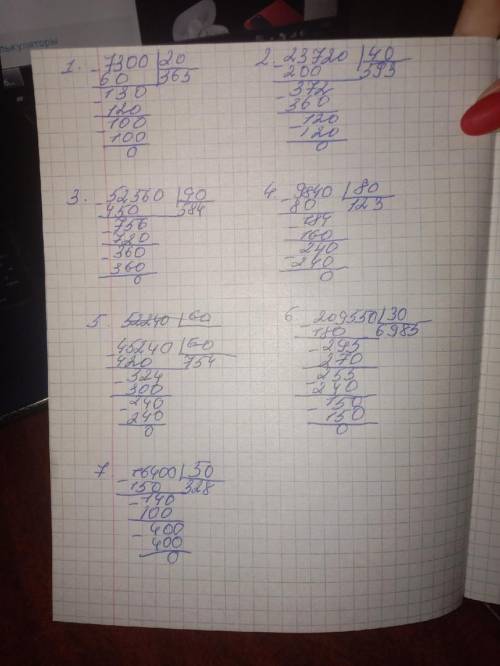 лькуляторы
1. -7300 |20
60 365
-130
120
-100
100
0
2 -23720 |40
200 593
-372
360
-120
120
0
3. -52560 |90
450 584
-756
720
-360
360
0
4. -9840 |80
80 123
-184
160
-240
240
0
5. 52240 |60
-45240 |60
420 754
-324
300
-240
240
0
6 -209550 |30
180 6985
-295
270
-255
240
-150
150
0
7 -16400 |50
150 328
-140
100
-400
400
0